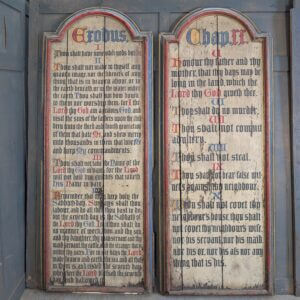 Exodus
Thou shalt have none other gods but me.
II
Thou shalt not make to thyself any
graven image, nor the likeness of any
thing that is in heaven above, or in
the earth beneath or in the water under
the earth. Thou shalt not bow down
to them nor worship them, for I
the Lord thy God am a jealous God and
visit the sins of the fathers upon the
children unto the third and fourth generation
of them that hate me, and shew mercy
unto thousands in them that love me
and keep my commandments.
III
Thou shalt not take the Name of the
Lord thy God in vain, for the Lord
will not hold him guiltless that taketh
His Name in vain.
Remember that thou keep holy the
Sabbath day. Six days shalt thou
labour, and do all that thou hast to do;
the seventh day is the Sabbath of
the Lord thy God. In it thou shalt do
no manner of work, thou, and thy son
and thy daughter, thy manservant and thy
Chap.
V
Honour thy father and thy
mother, that thy days may be
long in the land which the
Lord thy God giveth thee.
VI
Thou shalt do no murder.
VII
Thou shalt not commit
adultery.
VIII
Thou shalt not steal.
IX
Thou shalt not bear false wit-
ness against thy neighbour.
X
Thou shalt not covet thy
neighbour's house, thou shalt
not covet thy neighbour's wife,
nor his servant, nor his maid,
nor his ox, nor his ass, nor any
thing that is his.